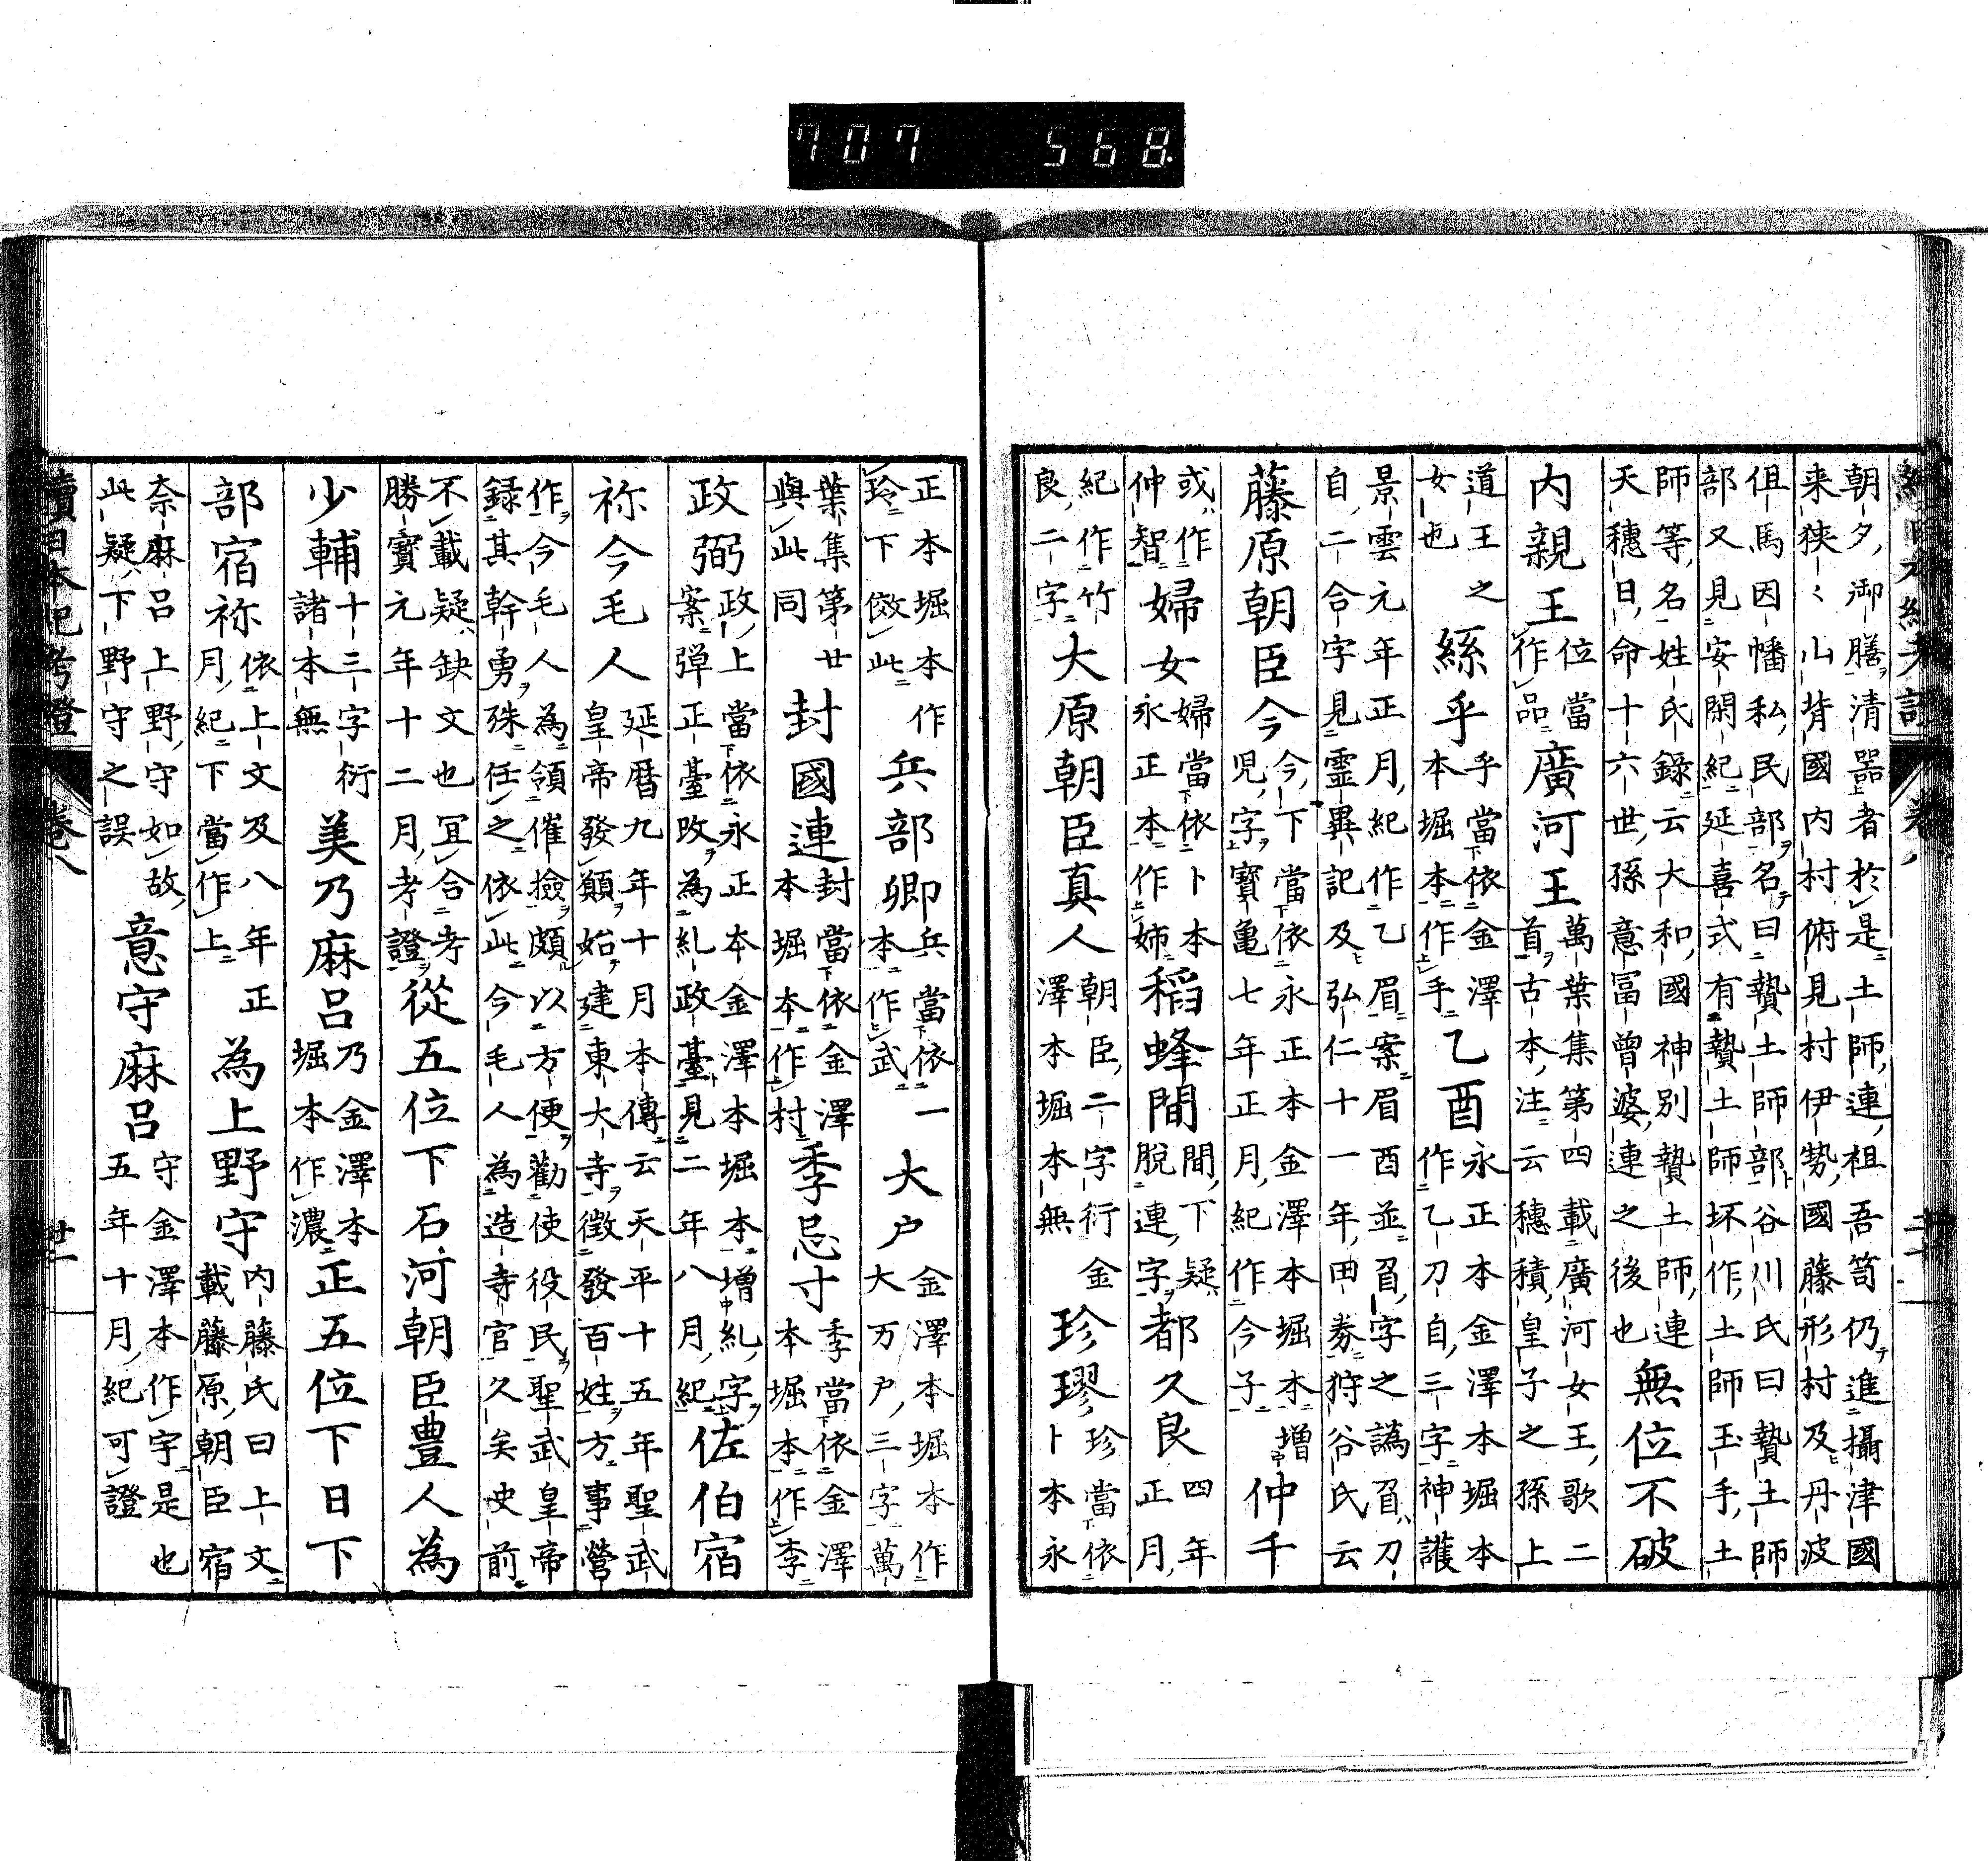 朝夕御膳清器者於是土師連祖吾笥仍進攝津國
来狹々山背國内村俯見村伊勢國藤形村及丹波
但馬因幡私民部名曰贄土師部谷川氏曰贄土師
部又見安閑紀延喜式有贄土師坏作土師玉手土
師等名姓氏録云大和國神別贄土師連
天穗日命十六世孫意冨曾婆連之後也
無位不破
内親王
位當
作品
廣河王
萬葉集第四載廣河女王歌二
首古本注云穗積皇子之孫上
道王之
女也
絲乎
乎當依金澤
本堀本作手
乙酉
永正本金澤本堀本
作乙刀自三字神護
景雲元年正月紀作乙眉案眉酉並字之譌刀
自二合字見靈異記及弘仁十一年田劵狩谷氏云
藤原朝臣今
今下當依永正本金澤本堀本増
児字寶亀七年正月紀作今子
仲千
或作
仲智
婦女
婦當依卜本
永正本作姉
稻蜂間
間下疑
脱連字
都久良
四年
正月
紀作竹
良二字
大原朝臣真人
朝臣二字衍金
澤本堀本無
珍璆
珍當依
卜本永
正本堀本作
玲下倣此
兵部卿
兵當依一
本作武
大户
金澤本堀本作
大万户三字萬
葉集第廿
與此同
封國連
封當依金澤
本堀本作村
季忌寸
季當依金澤
本堀本作李
政弼
政上當依永正本金澤本堀本増糺字
案弾正臺改為糺政臺見二年八月紀
佐伯宿
祢今毛人
延暦九年十月本傳云天平十五年聖武
皇帝發願始建東大寺徴發百姓方事營
作今毛人為領催撿頗以方便勸使役民聖武皇帝
録其幹勇殊任之依此今毛人為造寺官久矣史前
不載疑缺文也冝合考
勝寶元年十二月考證
從五位下石河朝臣豊人為
少輔
十三字衍
諸本無
美乃麻呂
乃金澤本
堀本作濃
正五位下日下
部宿祢
依上文及八年正
月紀下當作上
為上野守
内藤氏曰上文
載藤原朝臣宿
奈麻呂上野守如故
此疑下野守之誤
意守麻呂
守金澤本作宇是也
五年十月紀可證
續日本紀考證
卷八
廿一